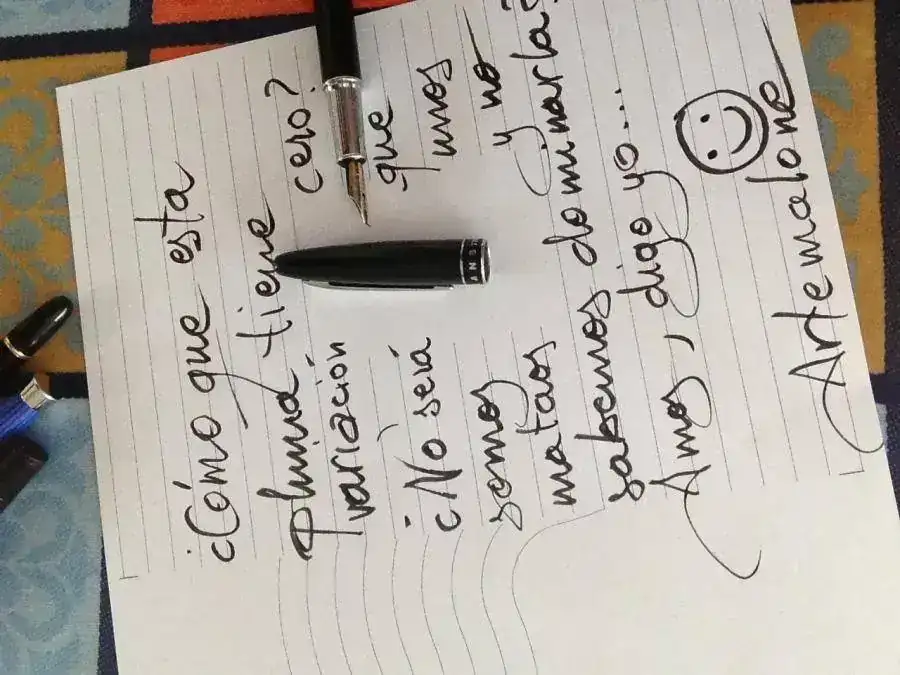 ¿Cómo que esta
pluma tiene
variación cero?
¿No será que
somos unos
mataos y no
sabemos dominarla?
Amos, digo yo...
Artemalone